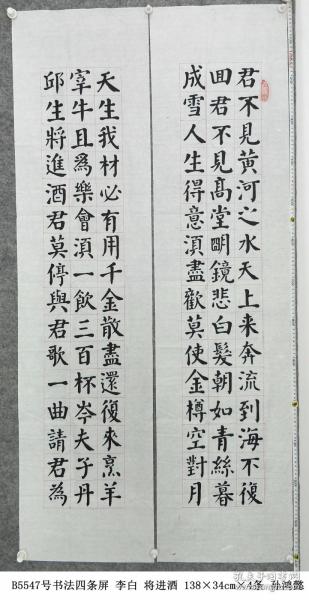 君不見黃河之水天上来奔流到海不復
囬君不見髙堂眀鏡悲白髮朝如青絲暮
成雪人生得意湏盡歡莫使金樽空對月
天生我材必有用千金散盡還復來烹羊
宰牛且爲樂會湏一飲三百杯岑夫子丹
邱生將進酒君莫停與君歌一曲請君為
B5547号书法四条屏 李白 将进酒 138×34cm×4条 孙鸿懿